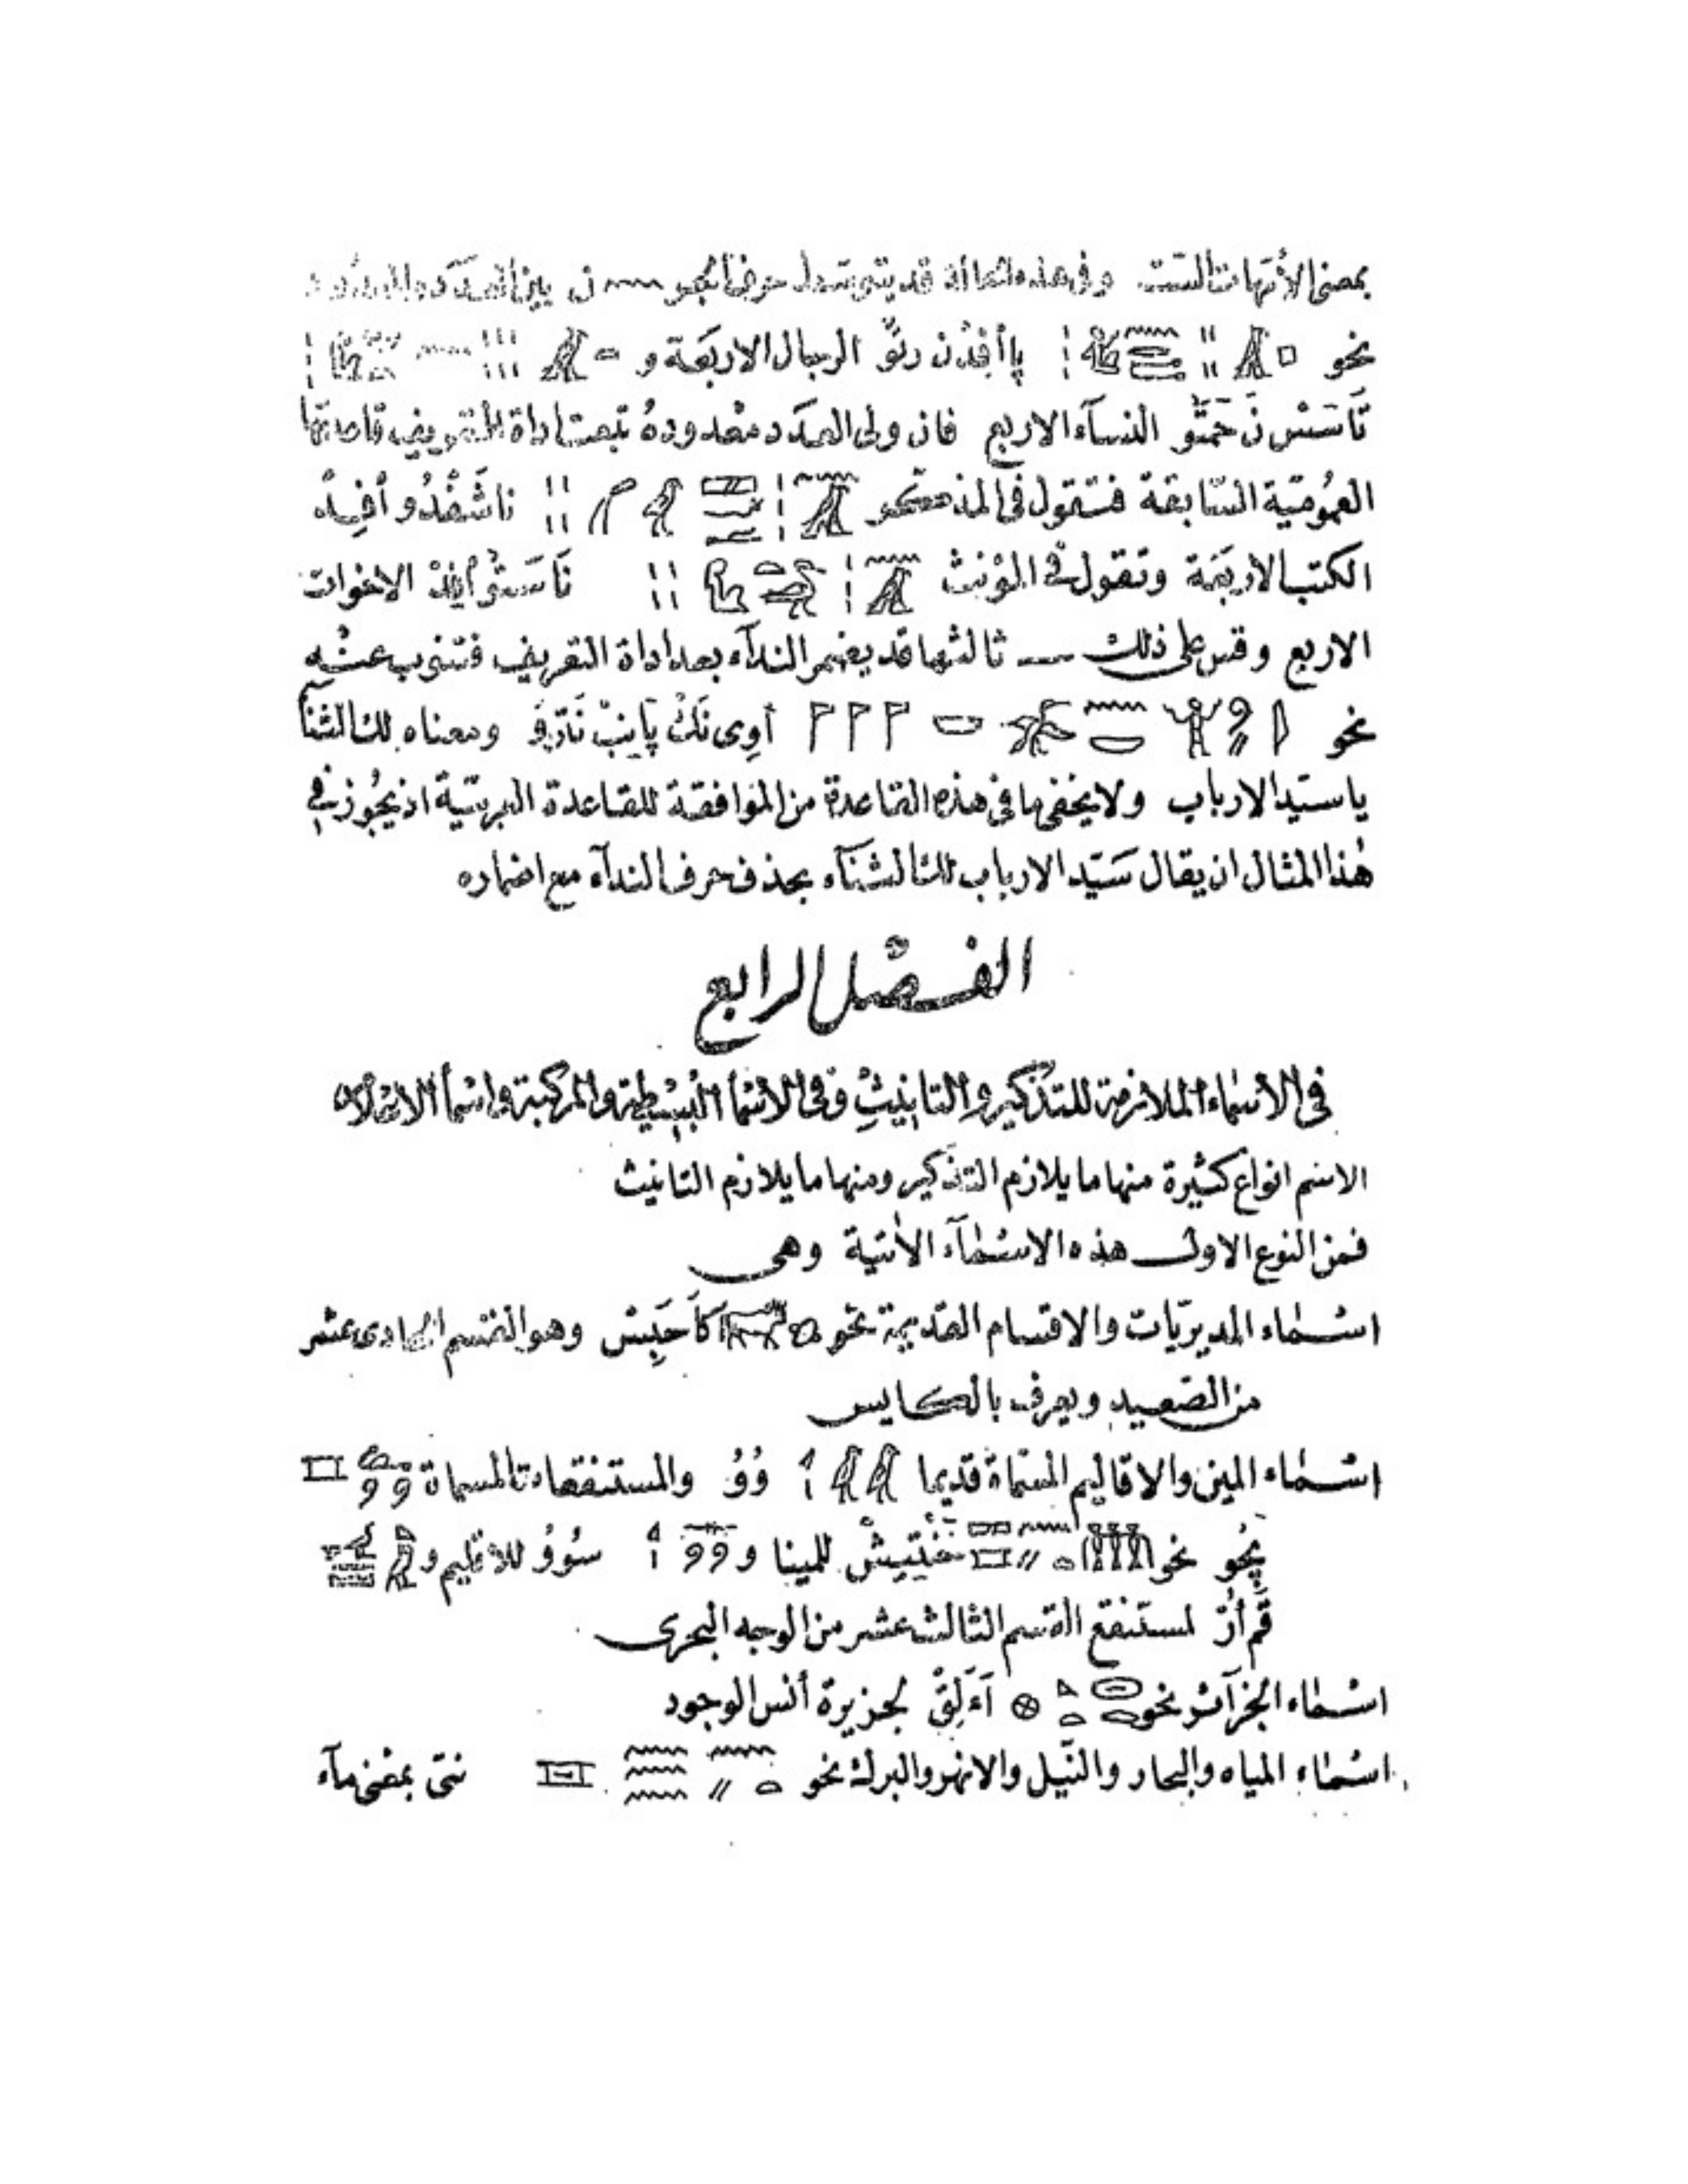 بمعنى الأمهات الست وفى هذه الحالة قد يتوسط حرف الجر ن بين العدد والمعدود
نحو پاأفدن رتو الرجال الاربعة و
تاسس ن حمتو النسآء الاربع فان ولى العدد معدوده تبعت اداة التعريف قاعدتها
العمومية السابقة فتقول فى المذكر نحو ناشفدو أفد
الكتب الاربعة وتقول فى المؤنث ناسنو أفد الاخوات
الاربع وقس على ذلك ــ ثالثها قد يضمر الندآء بعد اداة التعريف فتنوب عنه
نحو أوى نك پانب نترو ومعناه لك الثنآ
يا سيد الارباب ولا يخفى ما فى هذه القاعدة من الموافقة للقاعدة العربية اذ يجوز فى
هذا المثال ان يقال سيد الارباب لك الثنآء بحذف حرف الندآء مع اضماره
الفصل الرابع
فى الأسماء الملازمة للتذكير والتانيث وفى الاسمآ البسيطة والمركبة واسمآ
الاسم انواع كثيرة منها ما يلازم التذكير ومنها ما يلازم التانيث
فمن النوع الاول هذه الاسمآء الاتية وهى
اسماء المديريات والاقسام القديمة نحو كاحبس وهو القسم الحادى عشر
من الصعيد ويعرف بالكابس
اسماء المين والاقاليم المسماة قديما وو والمستنقعات المسماة
پحو نحو للمينا و سوو للاقليم و
قم أر لمستنقع القسم الثالث عشر من الوجه البحرى
اسماء الجزآئر نحو آءلق لجزيرة أنس الوجود
اسماء المياه والبحار والنيل والانهر والبرك نحو نتى بمعنى مآء